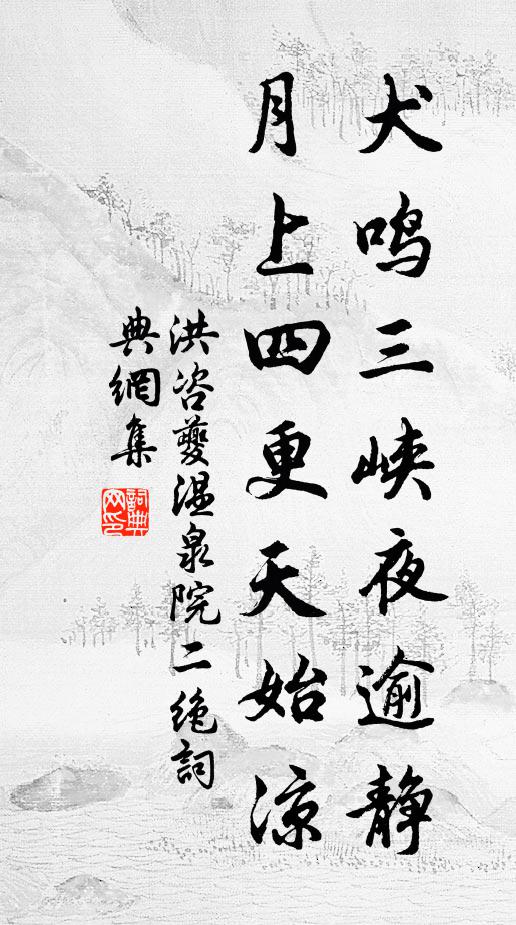 犬鸣三峡夜逾静
月上四更天始凉
洪咨夔温泉院二绝詞
典網集
詞典网印